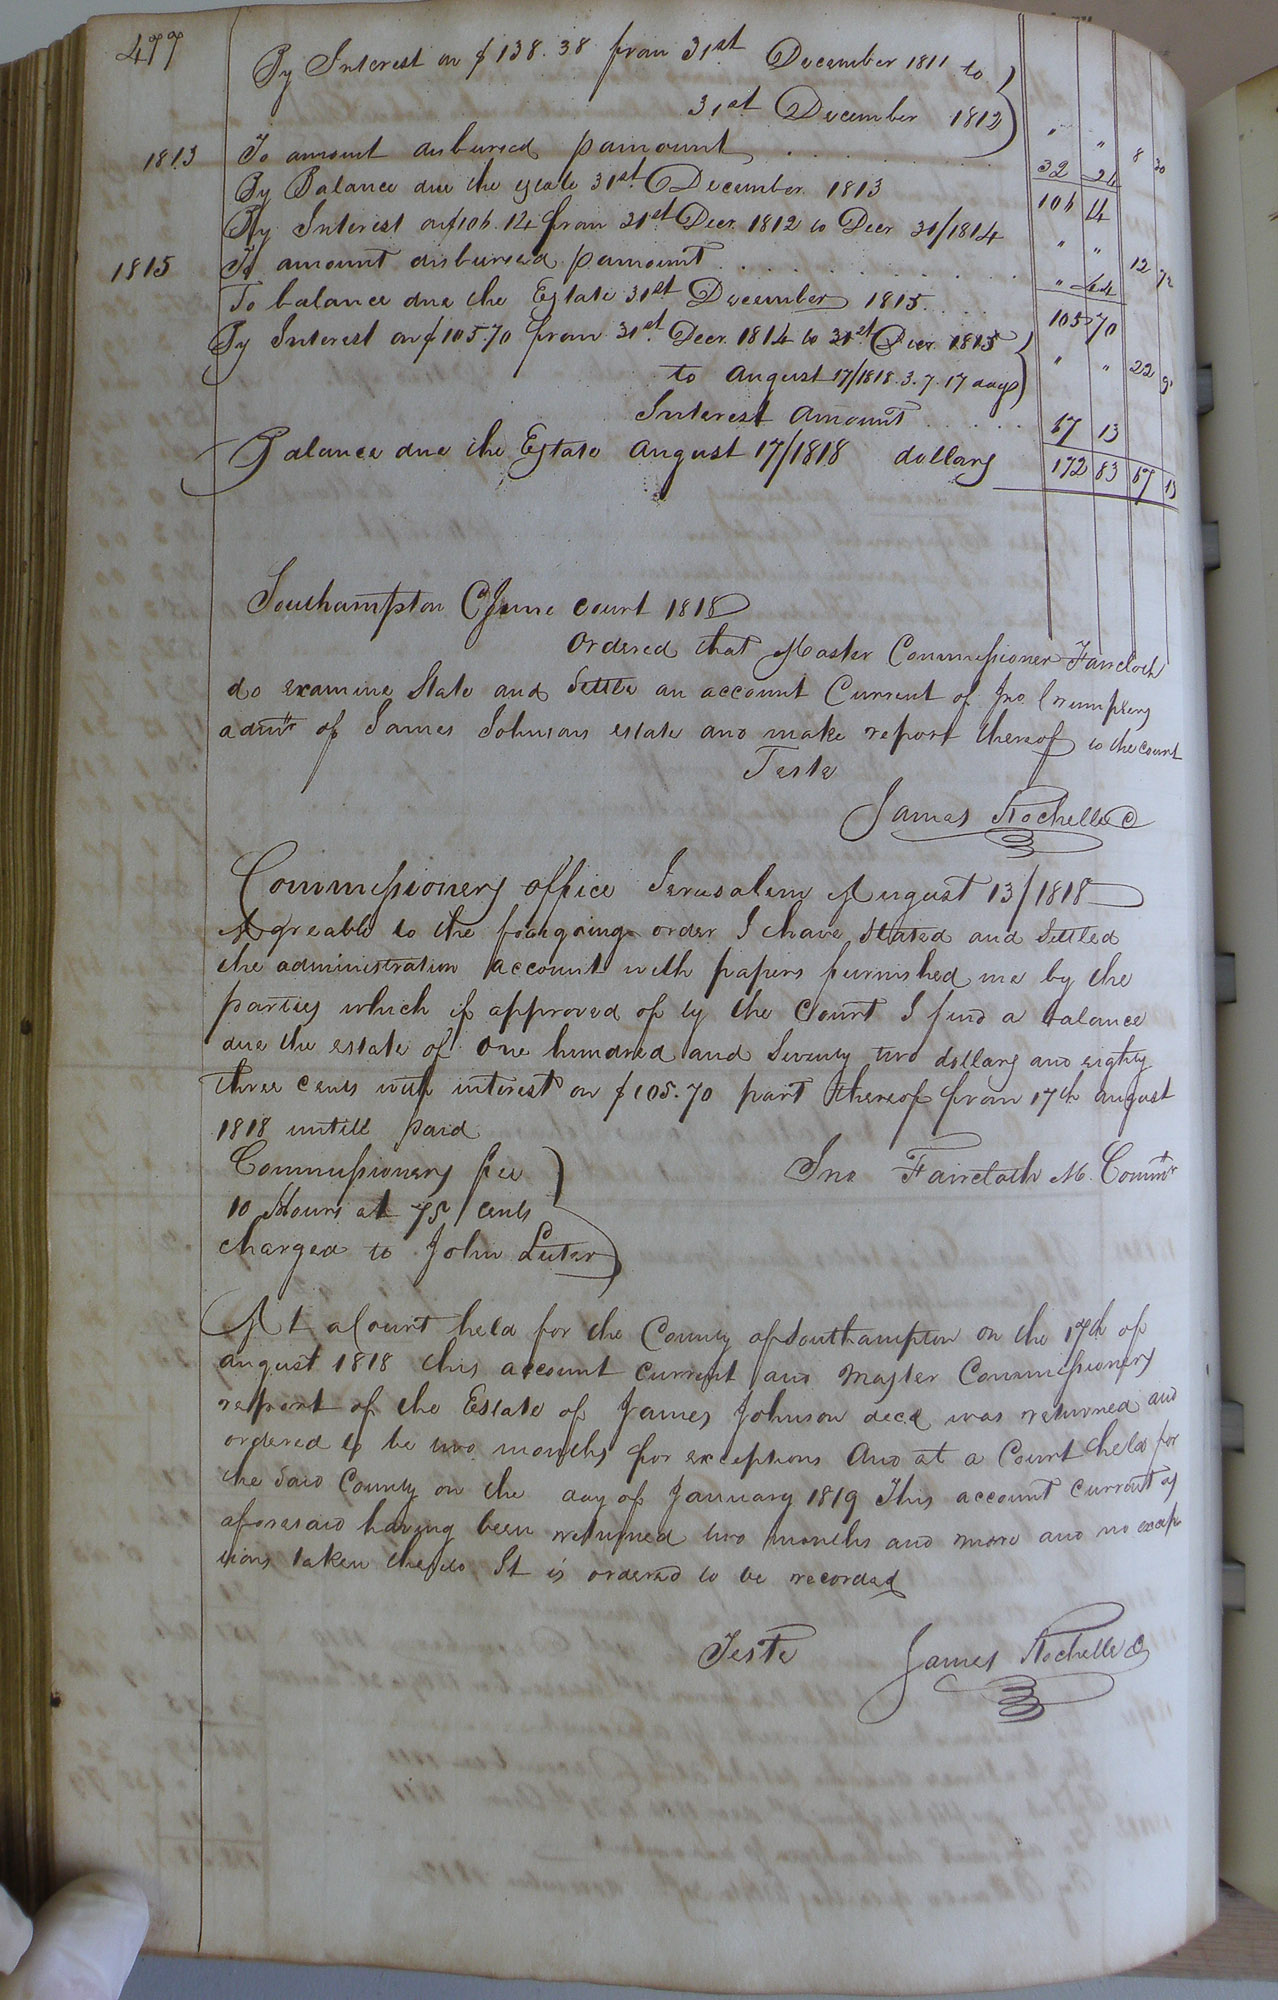 477
By Interest on $138.38 from 31st December 1811 to
31st December 1812 " " 8 30
1813 To amount disbursed pamount 32 24
By Balance due the estate 31st December 1813 106 14
By Interest on $106.14 from 31st Decr. 1812 to Decr 31/1814 " " 12 72
1815 To amount disbursed pamount " 44
To balance due the Estate 31st December 1815 105 70
By Interest on $105.70 from 31st. Decr. 1814 to 31st Decr 1815
to August 17/1818. 3. 7. 17 days " " 22
Interest Amount 67 13
Balance due the Estate August 17/1818 dollars 172 83 67 13
Southampton C June court 1818
Ordered that Master Commissioner Faircloth
do examine State and Settle an account Current of Jno Crumplers
admr of James Johnsons estate and make report thereof to the court
Teste
James Rochelle C
Commissioners office Jerusalem August 13/1818
Agreable to the foregoing order I have Stated and Settled
the administration account with papers furnished me by the
parties which if approved of by the Court I find a balance
due the estate of One hundred and Seventy two dollars and eighty
three cents with interest on $105.70 part thereof from 17th august
1818 untill paid
Commissioners fee Jno Faircloth M. Commr
10 Hours at 75/ cents
charged to John Luter
At a Court held for the County of Southampton on the 17th of
august 1818 this account current and Master Commissioners
report of the Estate of James Johnson decd was returned and
ordered to be two months for exceptions And at a Court held for
the said County on the day of January 1819 This account current as
aforesaid having been returned two months and more and no excep
tions taken thereto It is ordered to be recorded
Teste James Rochelle C